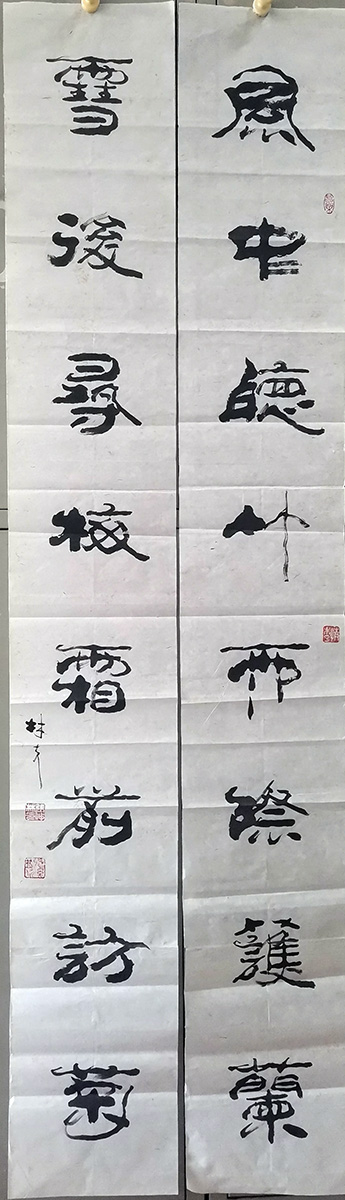 風中聽竹雨際護蘭
雪後尋梅霜前訪菊
林